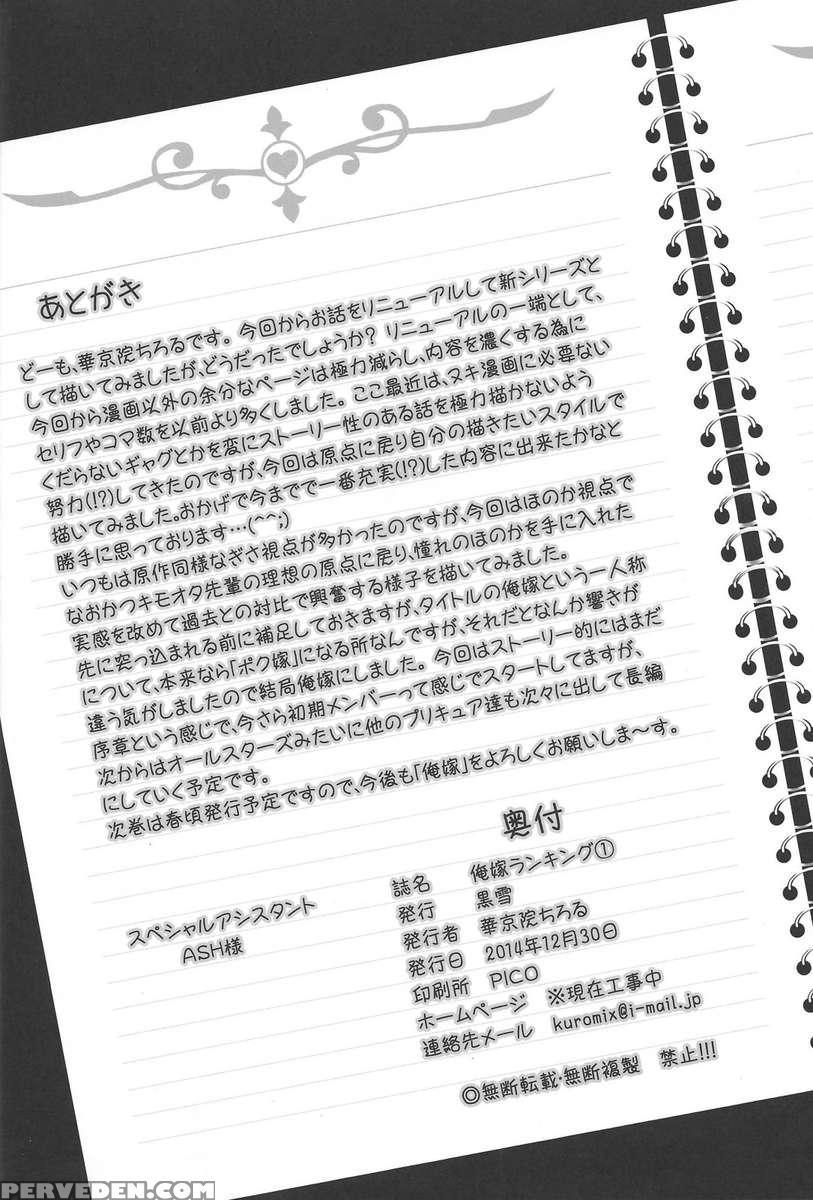 あとがき
どーも、華京院ちろるです。今回からお話をリニューアルして新シリーズと
して描いてみましたが、どうだったでしょうか? リニューアルの一端として、
今回から漫画以外の余分なページは極力減らし、内容を濃くする為に
セリフやコマ数を以前より多くしました。ここ最近は、ヌキ漫画に必要ない
くだらないギャグとかを変にストーリー性のある話を極力描かないよう
努力(!?)してきたのですが、今回は原点に戻り自分の描きたいスタイルで
描いてみました。おかげで今までで一番充実(!?)した内容に出来たかなと
勝手に思っております…(^^;)
いつもは原作同様なぎさ視点が多かったのですが、今回はほのか視点で
なおかつキモオタ先輩の理想の原点に戻り、憧れのほのかを手に入れた
実感を改めて過去との対比で興奮する様子を描いてみました。
先に突っ込まれる前に補足しておきますが、タイトルの俺嫁という一人称
について、本来なら「ボク嫁」になる所なんですが、それだとなんか響きが
違う気がしましたので結局俺嫁にしました。今回はストーリー的にはまだ
序章という感じで、今さら初期メンバーって感じでスタートしてますが、
次からはオールスターズみたいに他のプリキュア達も次々に出して長編
にしていく予定です。
次巻は春頃発行予定ですので、今後も「俺嫁」をよろしくお願いしま〜す。
スペシャルアシスタント
ASH様
奥付
誌名 俺嫁ランキング①
発行 黒雪
発行者 華京院ちろる
発行日 2014年12月30日
印刷所 PICO
ホームページ ※現在工事中
連絡先メール kuromix@i-mail.jp
◎無断転載・無断複製 禁止!!!
PERVEDEN.COM